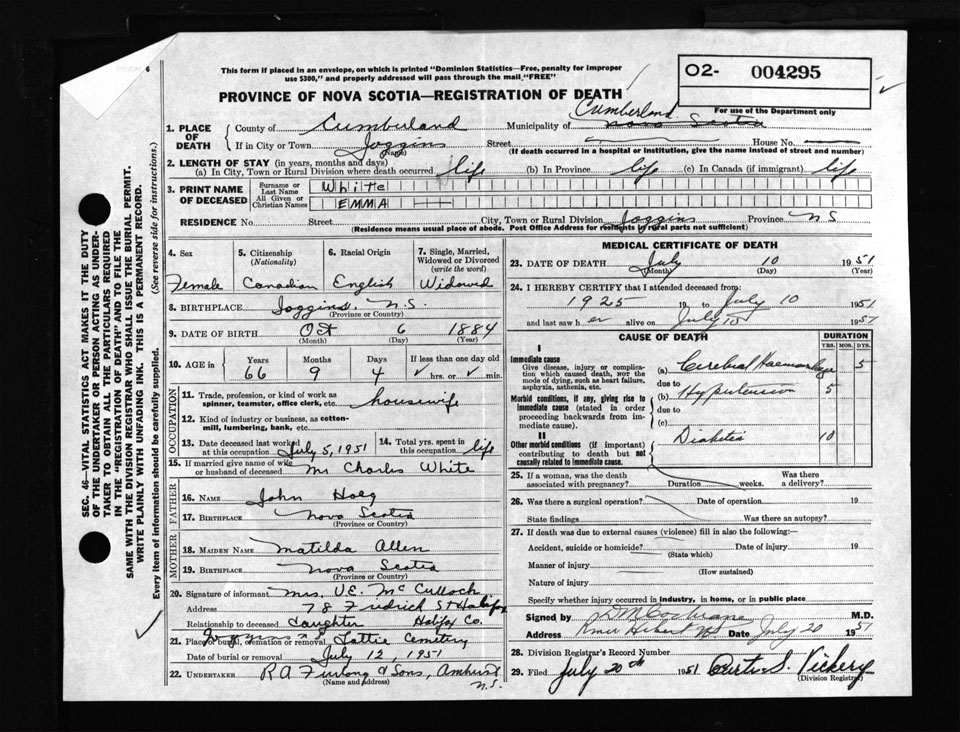 This form if placed in an envelope, on which is printed "Dominion Statistics—Free, penalty for improper
use $300," and properly addressed will pass through the mail "FREE"
PROVINCE OF NOVA SCOTIA—REGISTRATION OF DEATH
O2- 004295
For use of the Department only
1. PLACE OF DEATH
County of Cumberland Municipality of Nova Scotia Cumberland
If in City or Town Joggins Street House No.
(Name) (If death occurred in a hospital or institution, give the name instead of street and number)
2. LENGTH OF STAY (in years, months and days)
(a) In City, Town or Rural Division where death occurred life (b) In Province life (c) In Canada (if immigrant) life
3. PRINT NAME OF DECEASED
Surname or Last Name White
All Given or Christian Names EMMA
RESIDENCE No. Street City, Town or Rural Division Joggins Province N S
(Residence means usual place of abode. Post Office Address for residents in rural parts not sufficient)
4. Sex Female
5. Citizenship (Nationality) Canadian
6. Racial Origin English
7. Single, Married, Widowed or Divorced (write the word) Widowed
8. BIRTHPLACE Joggins, N.S.
(Province or Country)
9. DATE OF BIRTH Oct 6 1884
(Month) (Day) (Year)
10. AGE in Years Months Days If less than one day old
66 9 4 hrs. or min.
OCCUPATION
11. Trade, profession, or kind of work as spinner, teamster, office clerk, etc. housewife
12. Kind of industry or business, as cotton-mill, lumbering, bank, etc.
13. Date deceased last worked at this occupation July 5, 1951
14. Total yrs. spent in this occupation life
15. If married give name of wife or husband of deceased Mr Charles White
FATHER
16. NAME John Hoeg
17. BIRTHPLACE Nova Scotia
(Province or Country)
MOTHER
18. MAIDEN NAME Matilda Allen
19. BIRTHPLACE Nova Scotia
(Province or Country)
20. Signature of informant Mrs. V.E. McCulloch
Address 78 Fredrick St Halifax
Relationship to deceased daughter Halifax Co.
21. Place of burial, cremation or removal Joggins Cemetery
Date of burial or removal July 12, 1951
22. UNDERTAKER R A Furlong & Sons, Amherst N.S.
(Name and address)
MEDICAL CERTIFICATE OF DEATH
23. DATE OF DEATH July 10 1951
(Month) (Day) (Year)
24. I HEREBY CERTIFY that I attended deceased from:
1925 19 to July 10 1951
and last saw her alive on July 10 1951
CAUSE OF DEATH
DURATION
YRS. MOS. DYS.
I
Immediate cause
Give disease, injury or complication which caused death, NOT the mode of dying, such as heart failure, asphyxia, asthenia, etc.
(a) Cerebral Haemorrhage 5
due to
Morbid conditions, if any, giving rise to immediate cause (stated in order proceeding backwards from immediate cause).
(b) Hypertension 5
due to
(c)
II
Other morbid conditions (if important) contributing to death but not causally related to immediate cause.
Diabetis 10
25. If a woman, was the death associated with pregnancy? Duration weeks. Was there a delivery?
26. Was there a surgical operation? Date of operation 19
State findings Was there an autopsy?
27. If death was due to external causes (violence) fill in also the following:—
Accident, suicide or homicide? Date of injury 19
(State which)
Manner of injury
(How sustained)
Nature of injury
Specify whether injury occurred in industry, in home, or in public place
Signed by D M Cochrane M.D.
Address River Hebert NS Date July 20 1951
28. Division Registrar's Record Number
29. Filed July 20th 1951 Curtis S. Vickery
(Division Registrar)
SEC. 46—VITAL STATISTICS ACT MAKES IT THE DUTY
OF THE UNDERTAKER OR PERSON ACTING AS UNDER-
TAKER TO OBTAIN ALL THE PARTICULARS REQUIRED
IN THE "REGISTRATION OF DEATH" AND TO FILE THE
SAME WITH THE DIVISION REGISTRAR WHO SHALL ISSUE THE BURIAL PERMIT.
WRITE PLAINLY WITH UNFADING INK. THIS IS A PERMANENT RECORD.
Every item of information should be carefully supplied. (See reverse side for instructions.)